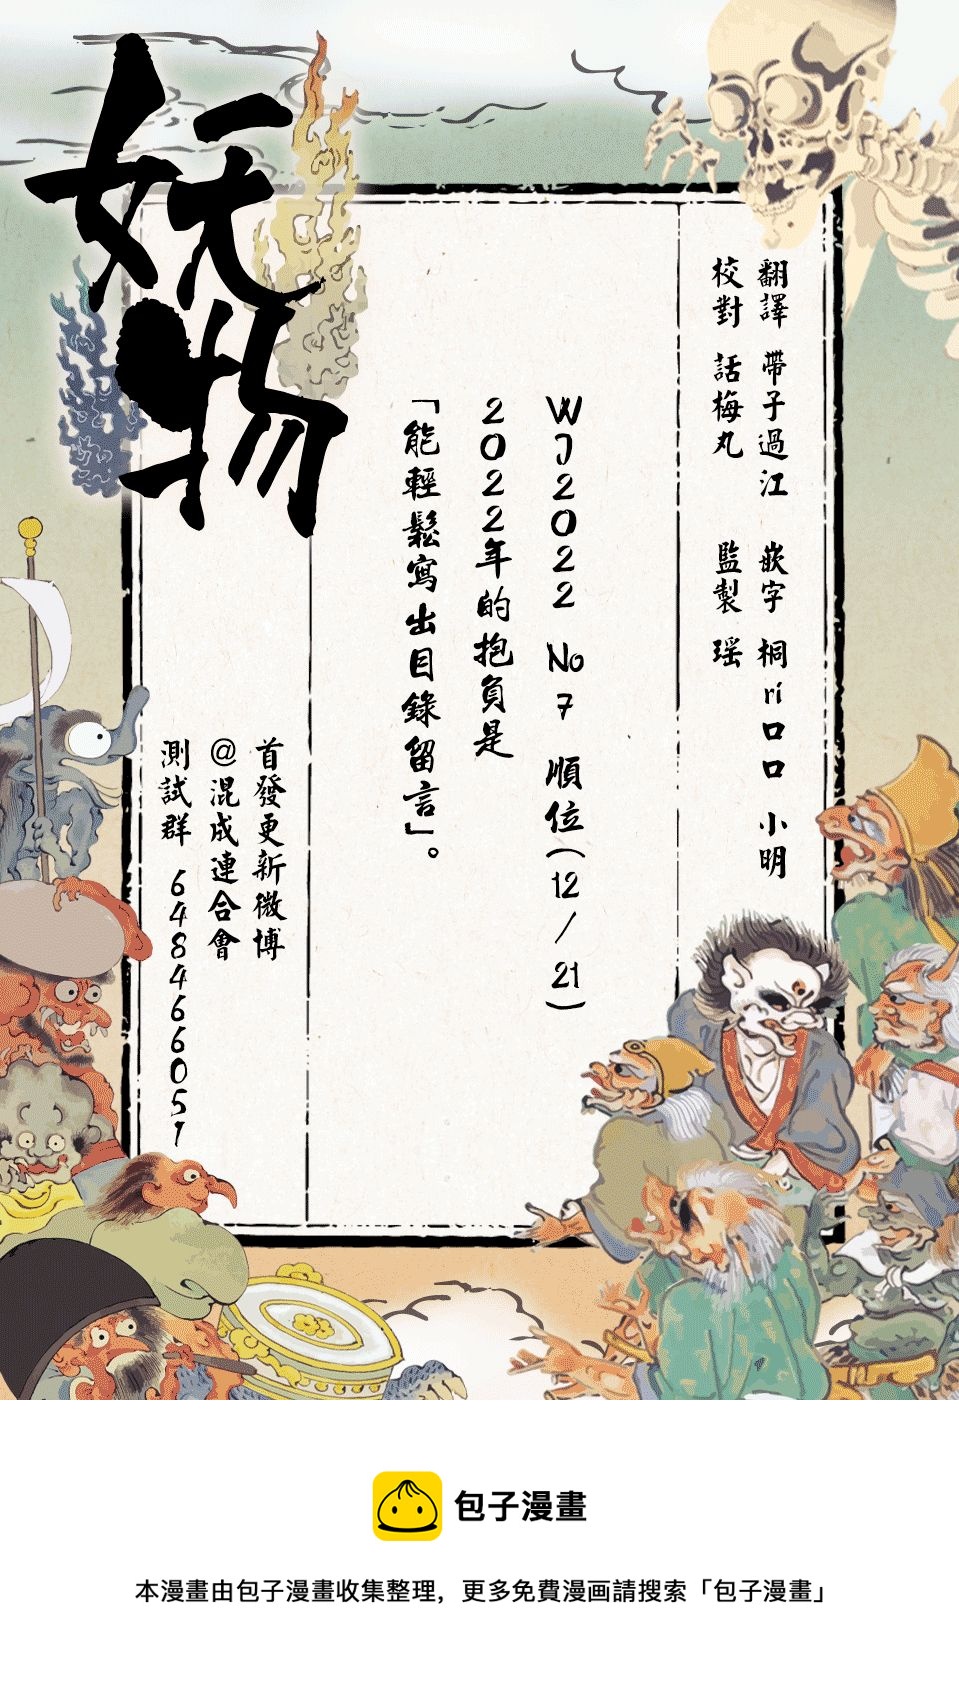 妖物
翻譯 帶子過江 嵌字 桐ri口口 小明
校對 話梅丸 監製 瑶
WJ2022 No7 順位(12/21)
2022年的抱負是
「能輕鬆寫出目錄留言」。
首發更新微博
@混成連合會
測試群 648466051
包子漫畫
本漫畫由包子漫畫收集整理，更多免費漫画請搜索「包子漫畫」